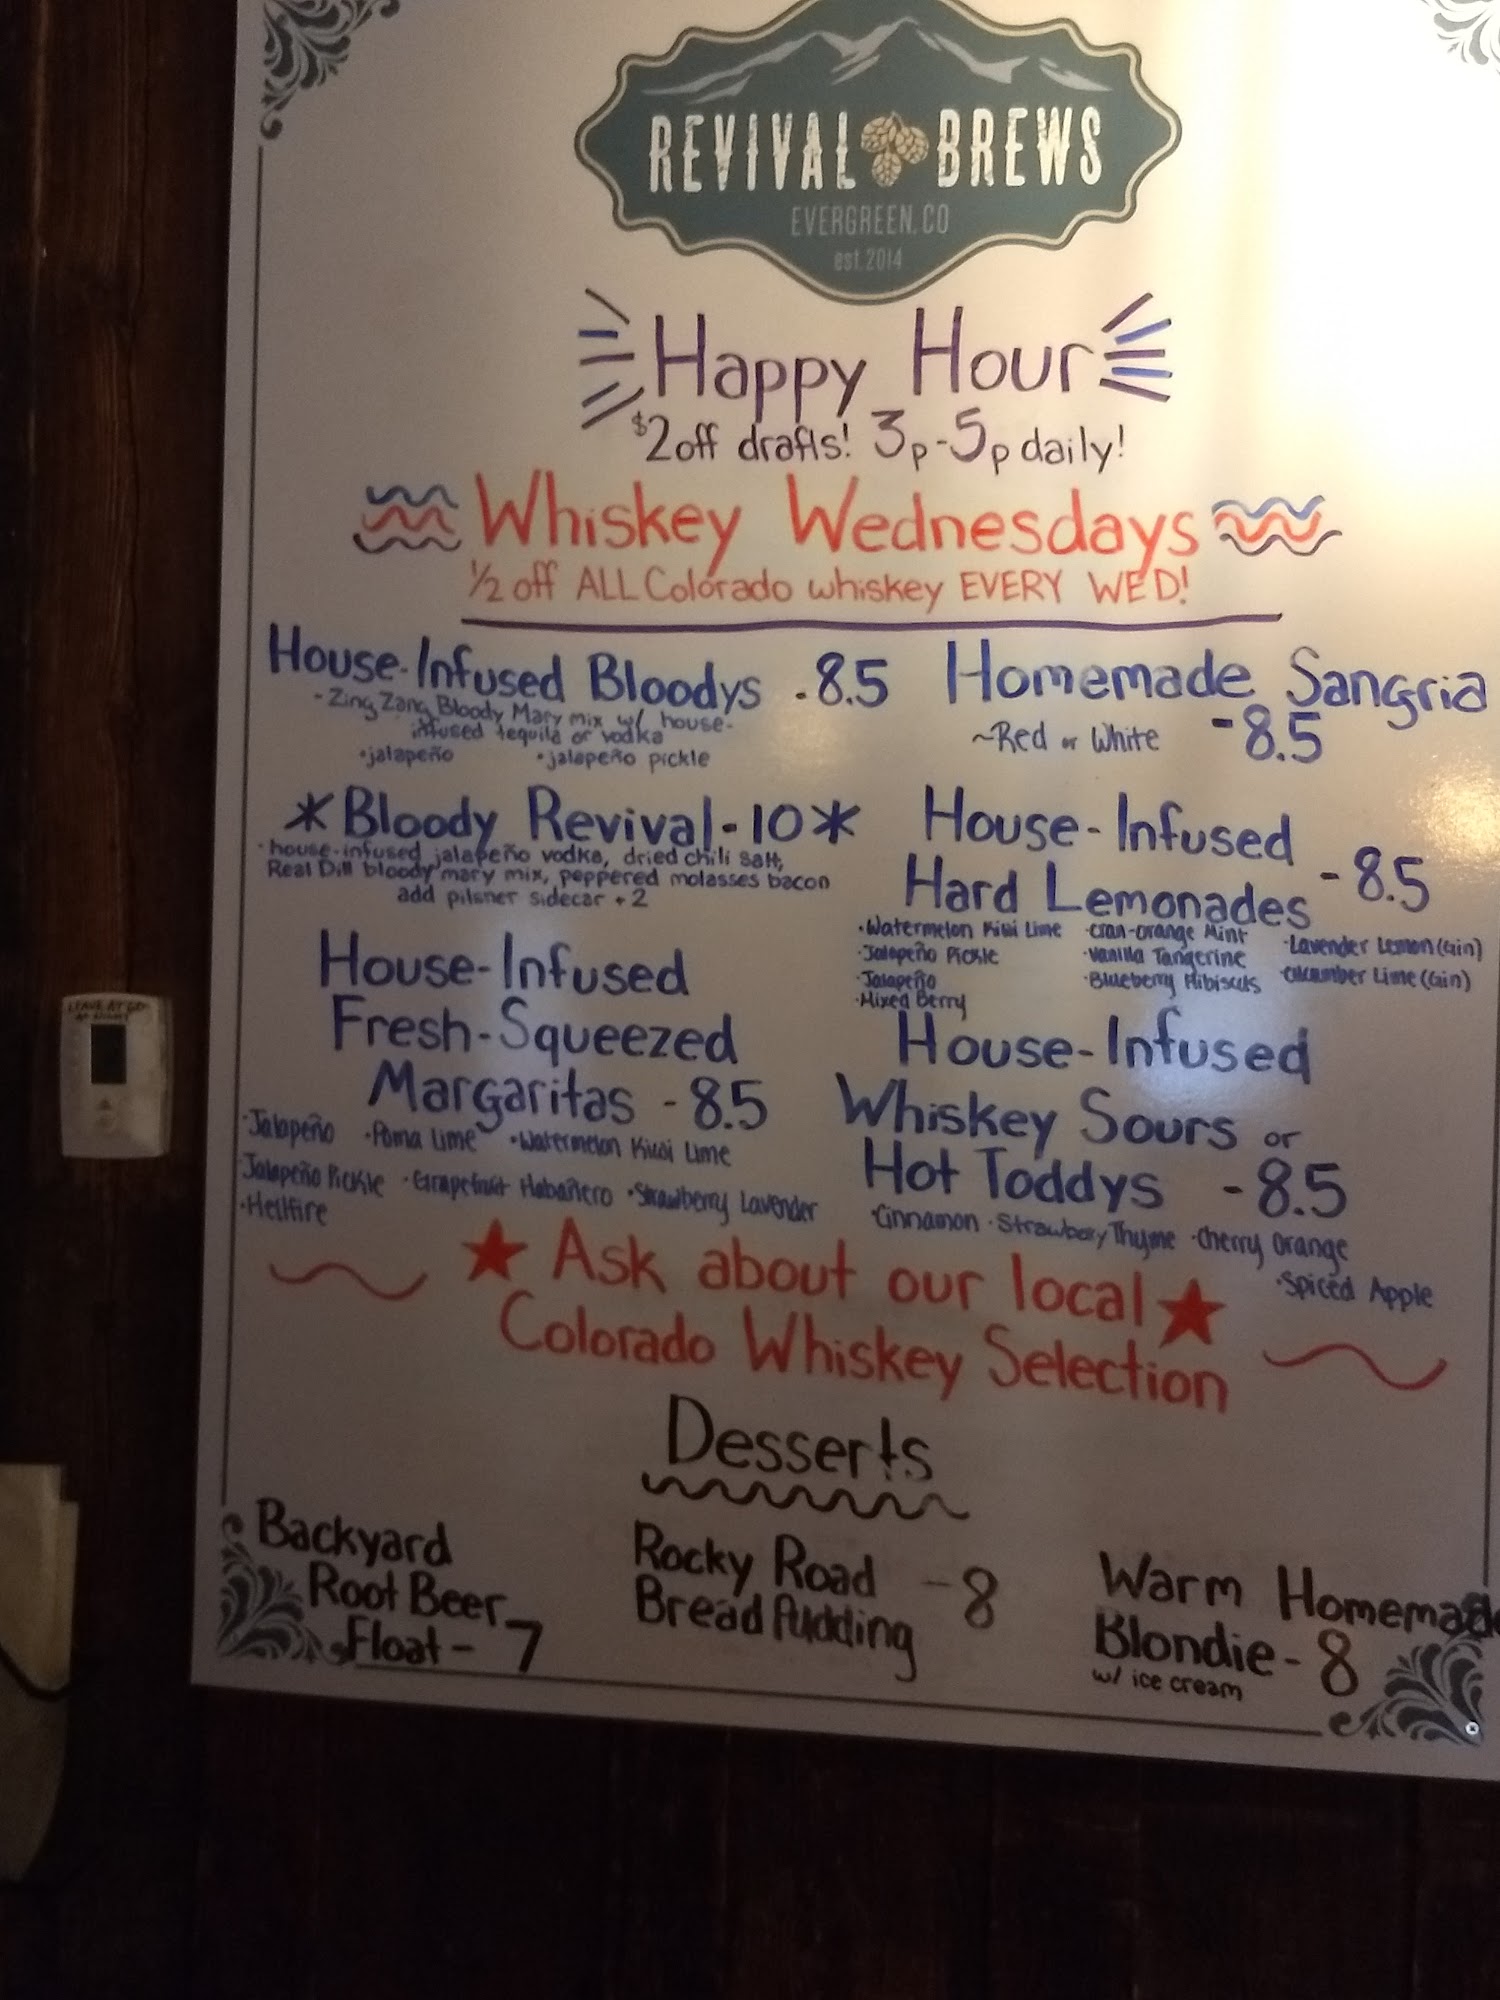 REVIVAL BREWS
EVERGREEN, CO
est. 2014
Happy Hour
$2 off drafts! 3p-5p daily!
Whiskey Wednesdays
1/2 off ALL Colorado whiskey EVERY WED!
House-Infused Bloodys - 8.5
- Zing Zang Bloody Mary mix w/ house-
infused tequila or vodka
•jalapeño •jalapeño pickle
*Bloody Revival - 10*
· house-infused jalapeño vodka, dried chili salt,
Real Dill bloody mary mix, peppered molasses bacon
add pilsner sidecar +2
House-Infused
Fresh-Squeezed
Margaritas - 8.5
·Jalapeño ·Poma Lime ·Watermelon Kiwi Lime
·Jalapeño Pickle ·Grapefruit Habañero ·Strawberry Lavender
·Hellfire
Homemade Sangria
~Red or White - 8.5
House-Infused
Hard Lemonades - 8.5
·Watermelon Kiwi Lime ·Cran-Orange Mint ·Lavender Lemon (Gin)
·Jalapeño Pickle ·Vanilla Tangerine ·Cucumber Lime (Gin)
·Jalapeño ·Blueberry Hibiscus
·Mixed Berry
House-Infused
Whiskey Sours or
Hot Toddys - 8.5
·Cinnamon ·Strawberry Thyme ·Cherry Orange
·Spiced Apple
★ Ask about our local ★
Colorado Whiskey Selection
Desserts
Backyard
Root Beer
Float - 7
Rocky Road
Bread Pudding - 8
Warm Homemade
Blondie - 8
w/ ice cream
LEAVE AT 60
AT NIGHT